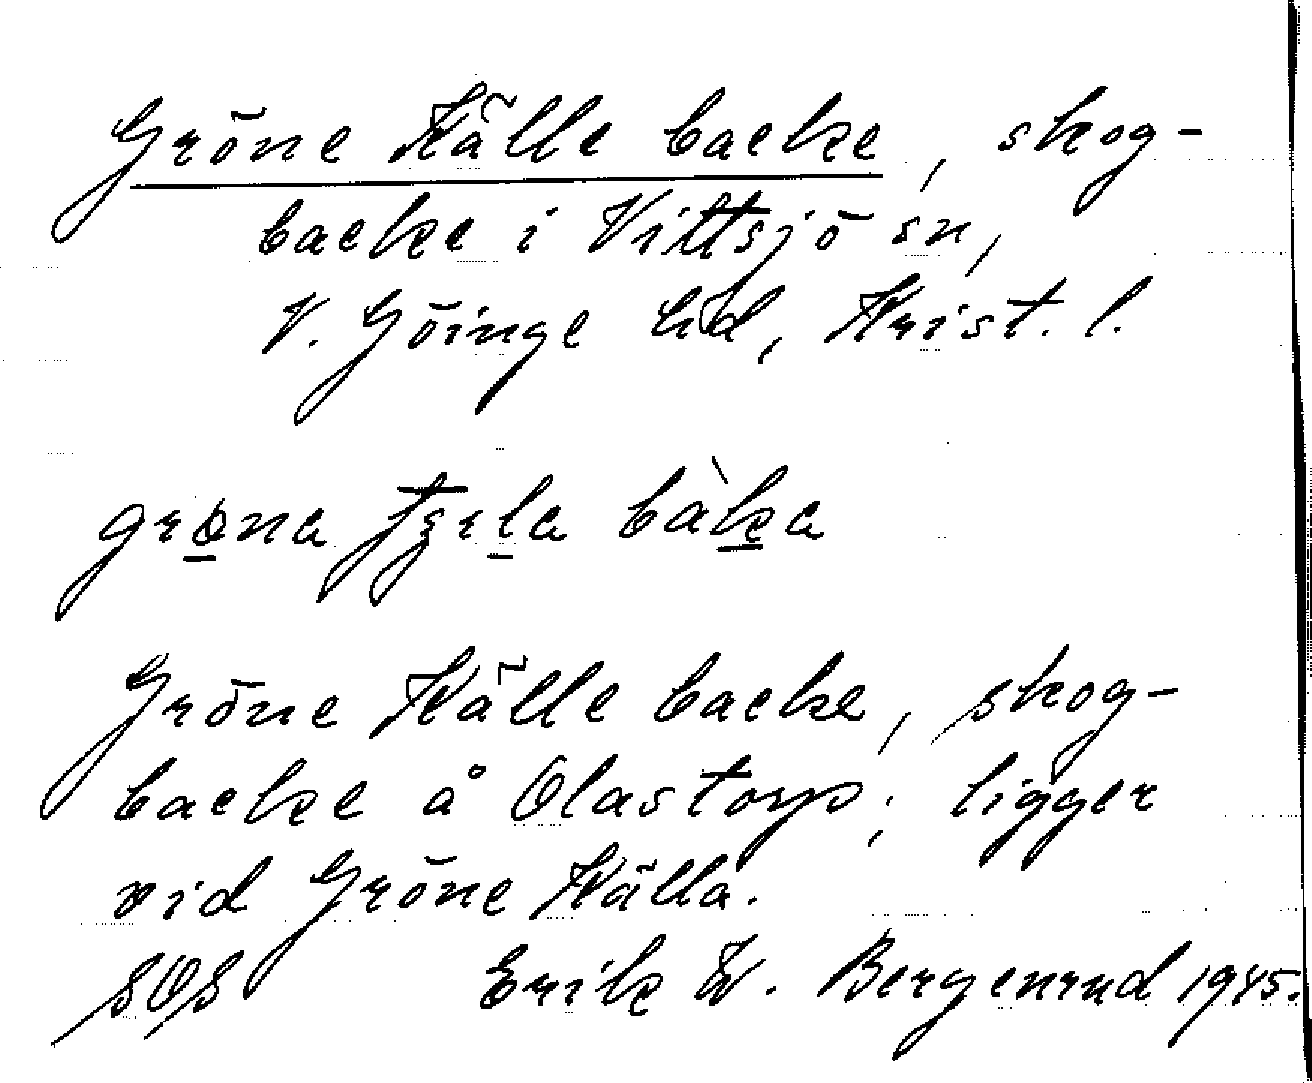 Gröne Källe backe, skog-
backe i Vittsjö sn,
V. Göinge hd, Krist. l.
bàka
Gröne Källe backe, skog-
backe å Olastorp; ligger
vid Gröne Källa.
SOS Erik W. Bergenrud 1945.